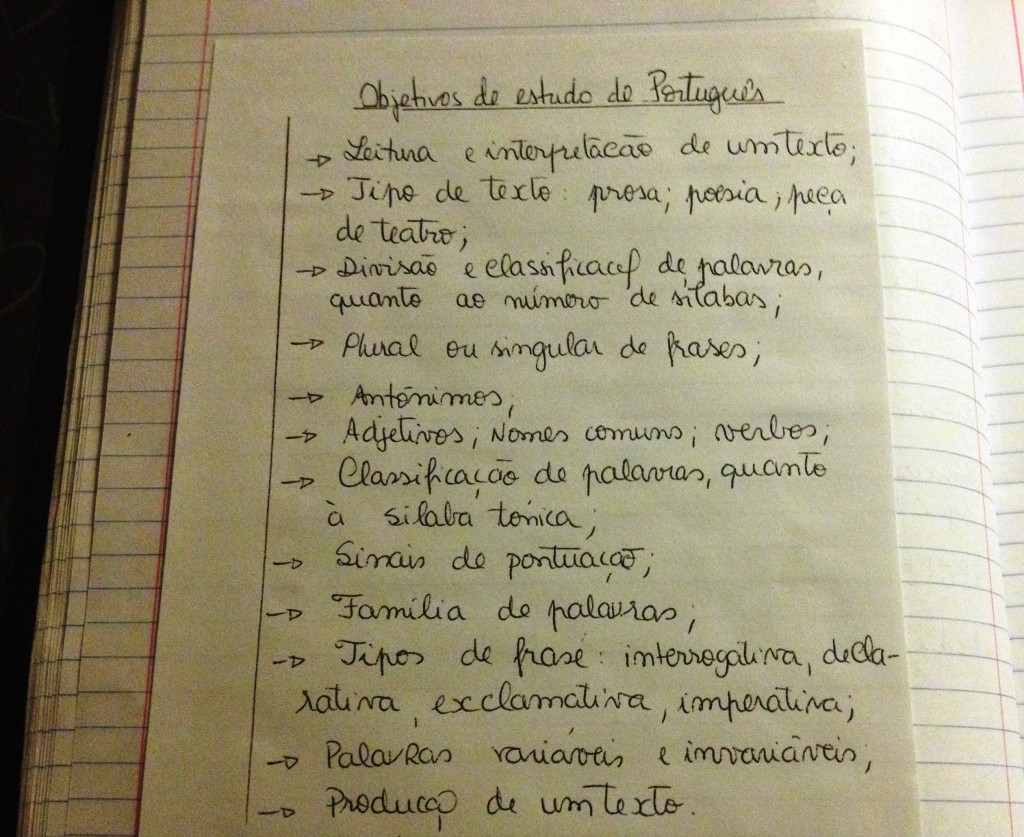 Objetivos de estudo de Português
→ Leitura e interpretação de um texto;
→ Tipo de texto: prosa; poesia; peça
de teatro;
→ Divisão e classificação de palavras,
quanto ao número de sílabas;
→ Plural ou singular de frases;
→ Antónimos;
→ Adjetivos; Nomes comuns; verbos;
→ Classificação de palavras, quanto
à sílaba tónica;
→ Sinais de pontuação;
→ Família de palavras;
→ Tipos de frase: interrogativa, decla-
rativa, exclamativa, imperativa;
→ Palavras variáveis e invariáveis;
→ Produção de um texto.